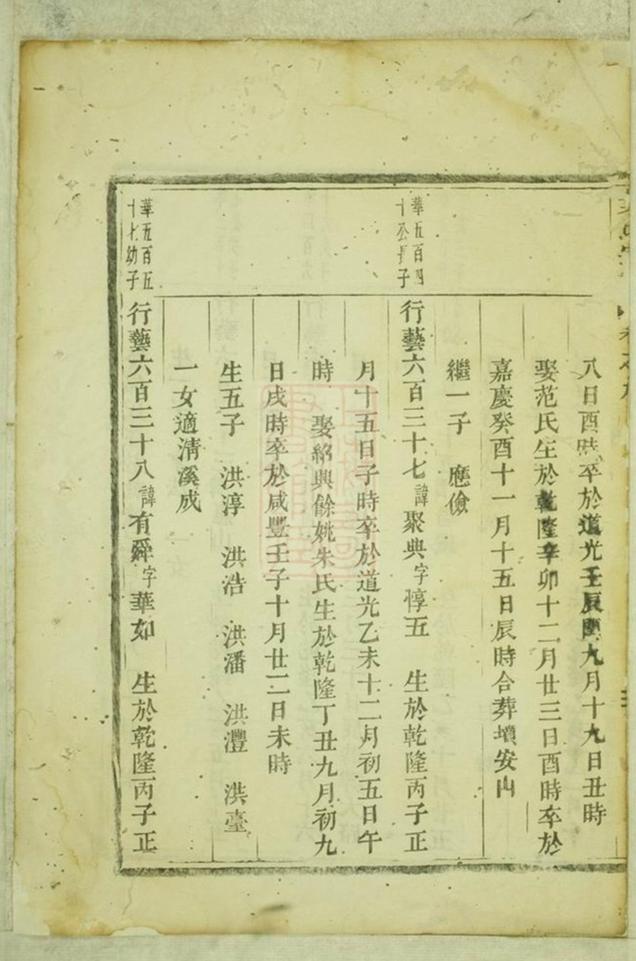 八日酉時卒於道光壬辰閏九月十九日丑時
娶范氏生於乾隆辛卯十二月廿三日酉時卒於
嘉慶癸酉十一月十五日辰時合葬墳安山
繼一子 應儉
華五百四十公長子
行藝六百三十七諱聚典字惇五 生於乾隆丙子正
月十五日子時卒於道光乙未十二月初五日午
時 娶紹興餘姚朱氏生於乾隆丁丑九月初九
日戌時卒於咸豐壬子十月廿二日未時
生五子 洪淳 洪浩 洪潘 洪灃 洪臺
一女適清溪成
華五百五十七幼子
行藝六百三十八諱有舜字華如 生於乾隆丙子正